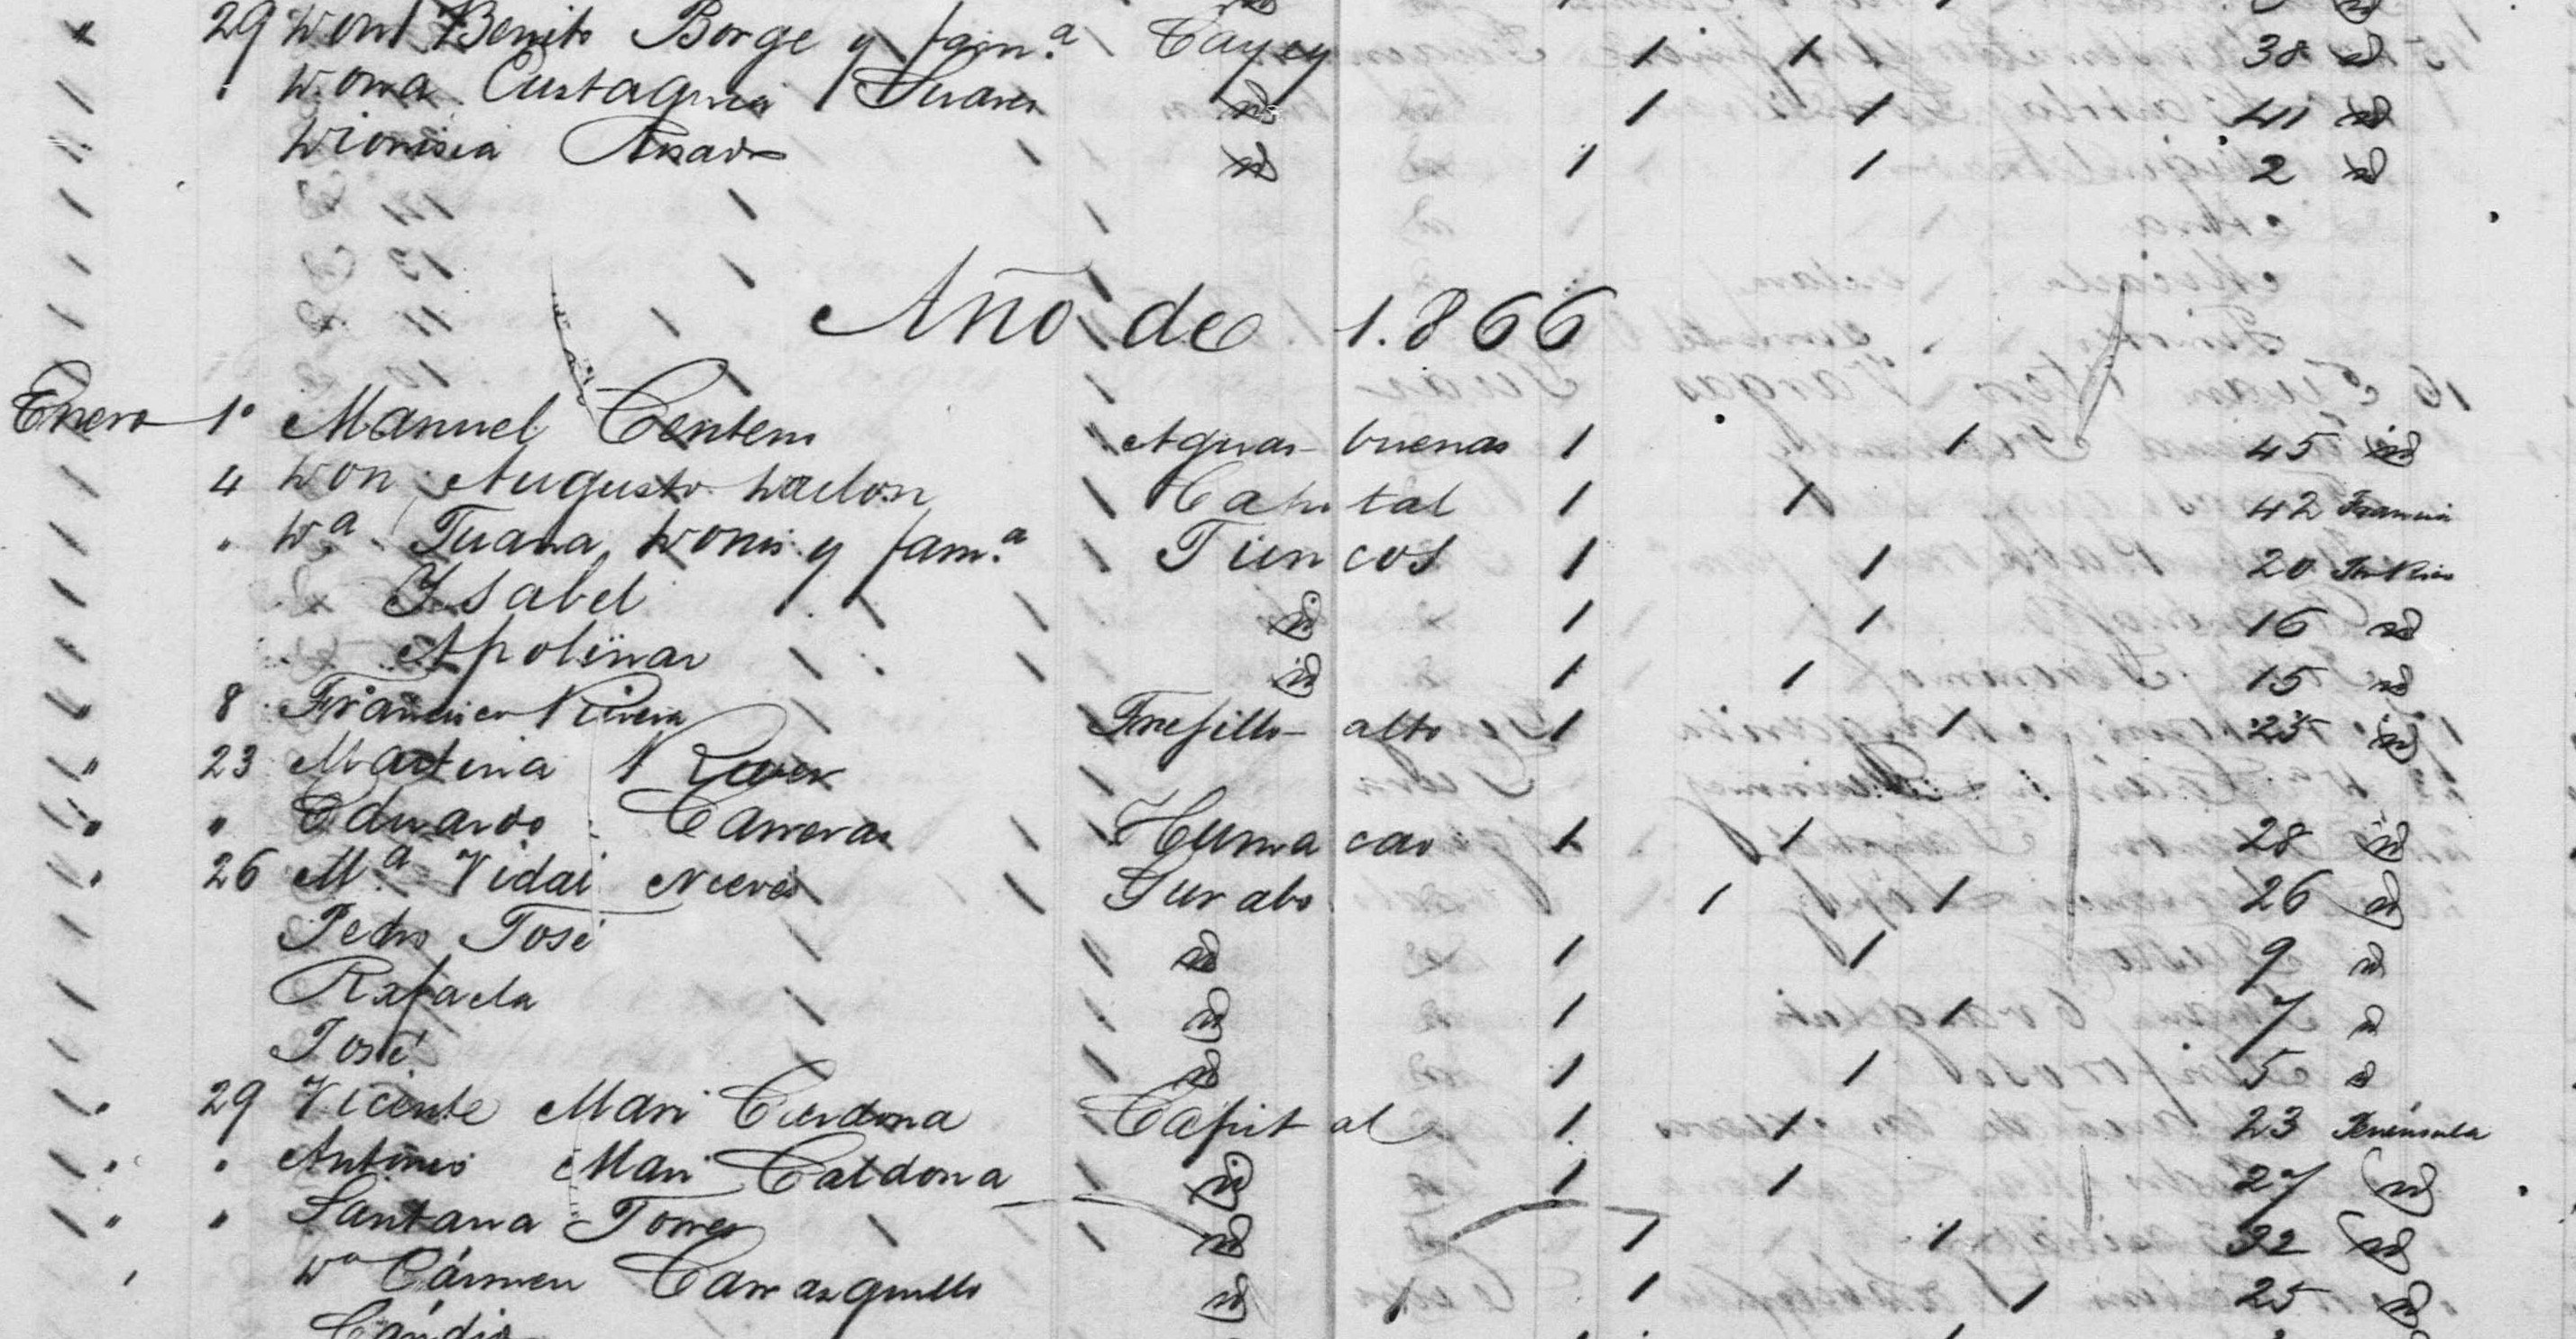 29 Don Benito Borge y fam.a Cayey 1 1 38 id
Dona Eustaquia Suares id 1 1 41 id
Dionisia Rosado id 1 1 2 id
Año de 1.866
Enero 1º Manuel Centeno Aguas-buenas 1 1 45 id
4 Don Augusto Capital 1 1 42 Francia
" Dª Juana Donis y fam.a Juncos 1 1 20 Pto Rico
Isabel id 1 1 16 id
Apolinar id 1 1 15 id
8 Francisco Rivera Trujillo-alto 1 1 25 id
23 Martina
" Eduardo Carreras Humacao 1 1 28 id
26 M.a Vidal Nieves Gurabo 1 1 26 id
Pedro José id 1 1 9 id
Rafaela id 1 1 7 id
José id 1 1 5 id
29 Vicente Mari Cardona Capital 1 1 23 Península
" Antonio Mari Caldona id 1 1 27 id
" Santana Torres id 1 1 32 id
Dª Cármen Carrasquillo id 1 1 25 id